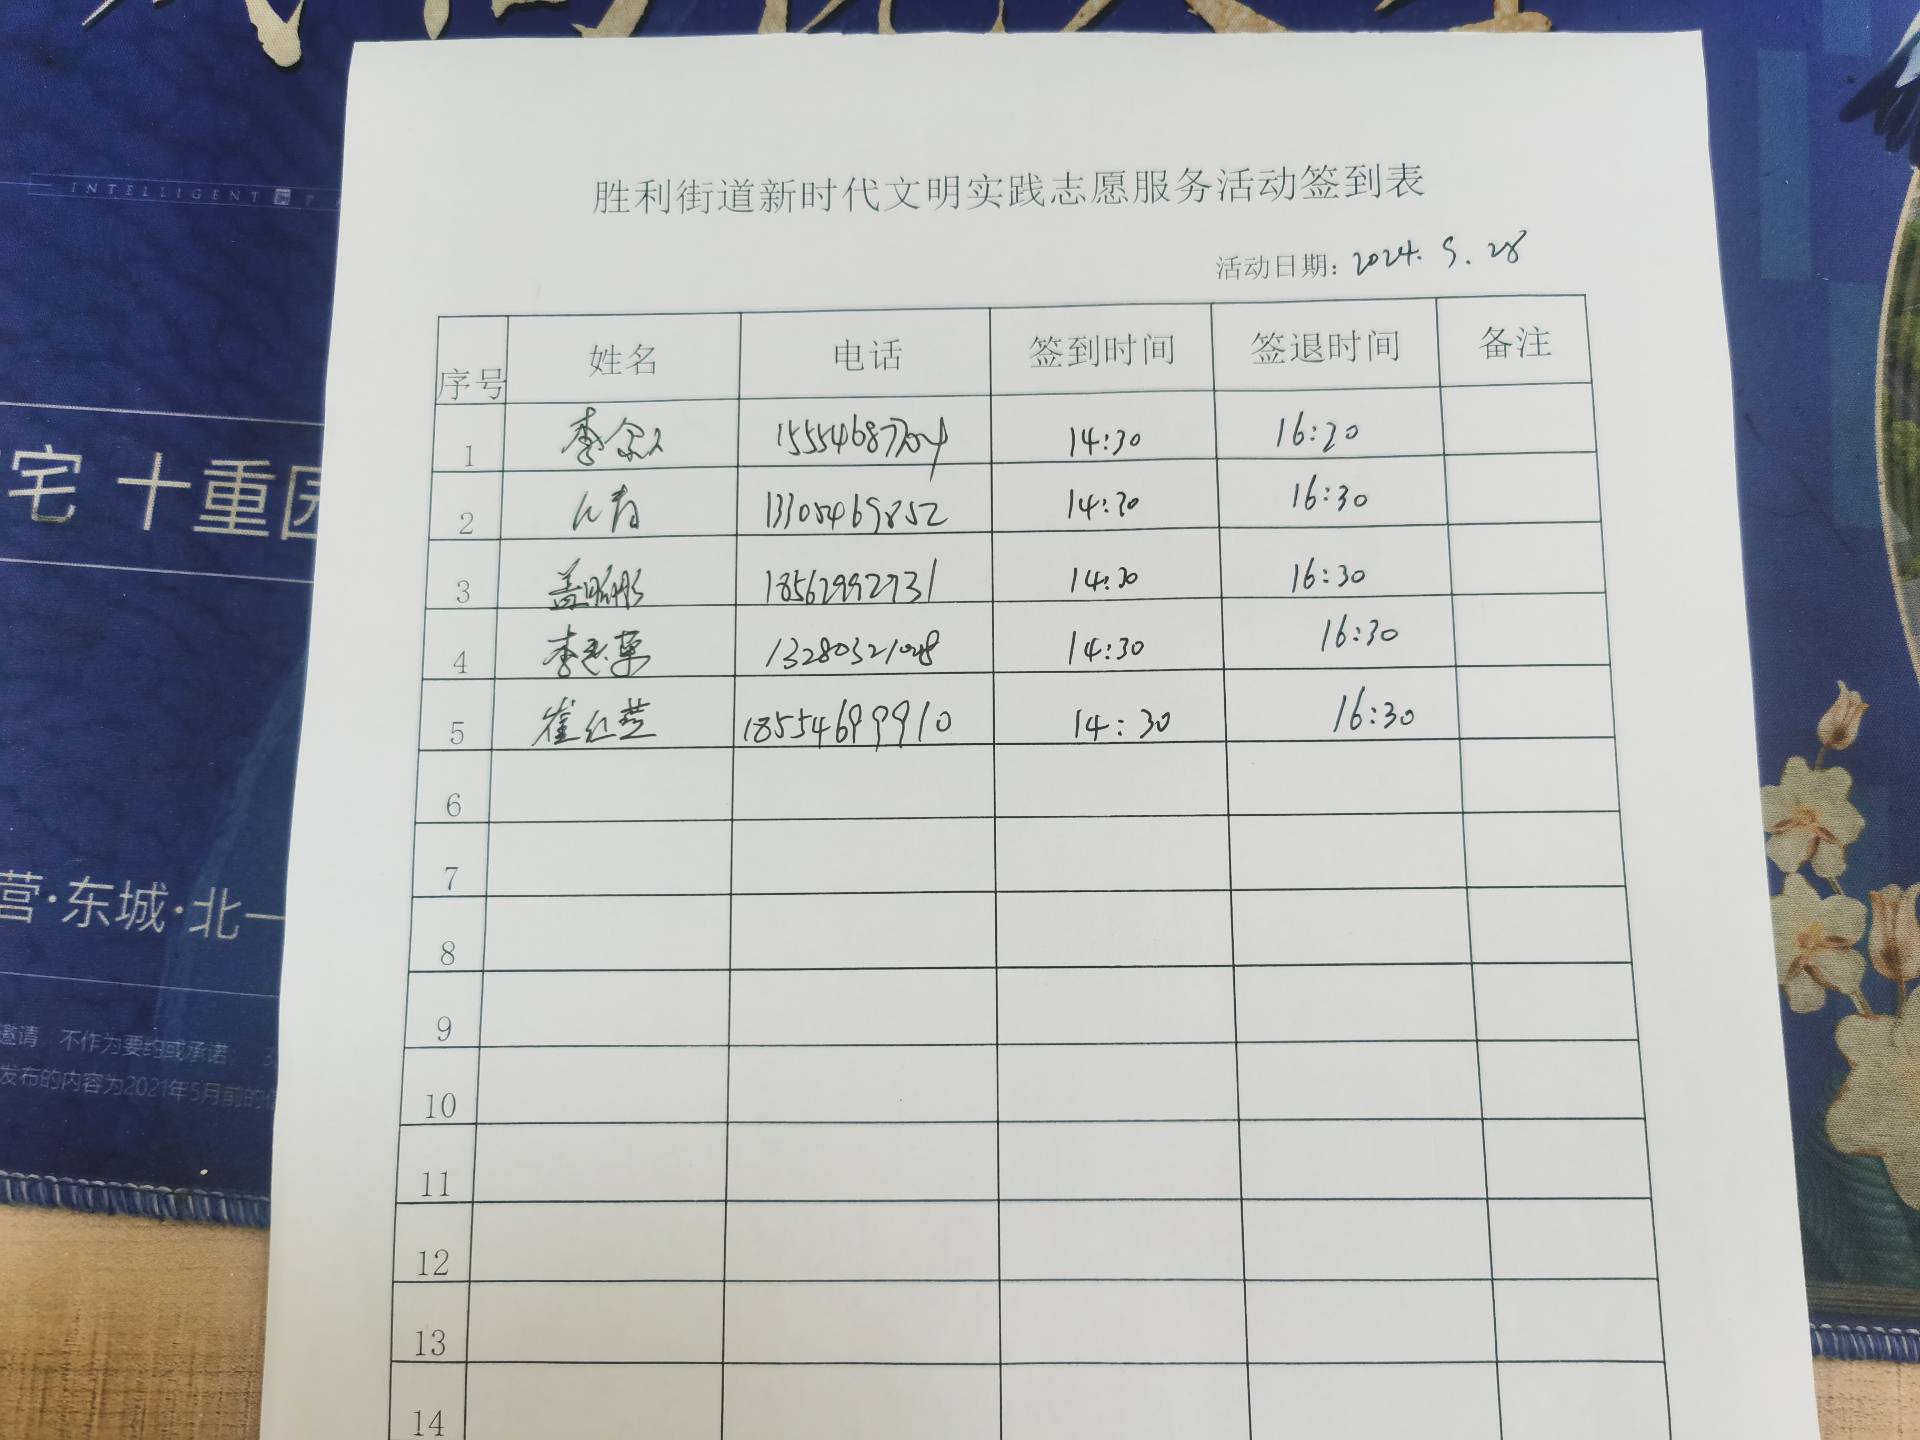 INTELLIGENT
宅 十重园
营·东城·北一
邀请 不作为要约或承诺
发布的内容为2021年5月前的信
胜利街道新时代文明实践志愿服务活动签到表
活动日期: 2024. 5. 28
序号 姓名 电话 签到时间 签退时间 备注
1 李 14:30 16:20
2 13305469852 14:30 16:30
3 盖 18562992731 14:30 16:30
4 李 13280321028 14:30 16:30
5 崔红芝 18554699910 14:30 16:30
6
7
8
9
10
11
12
13
14